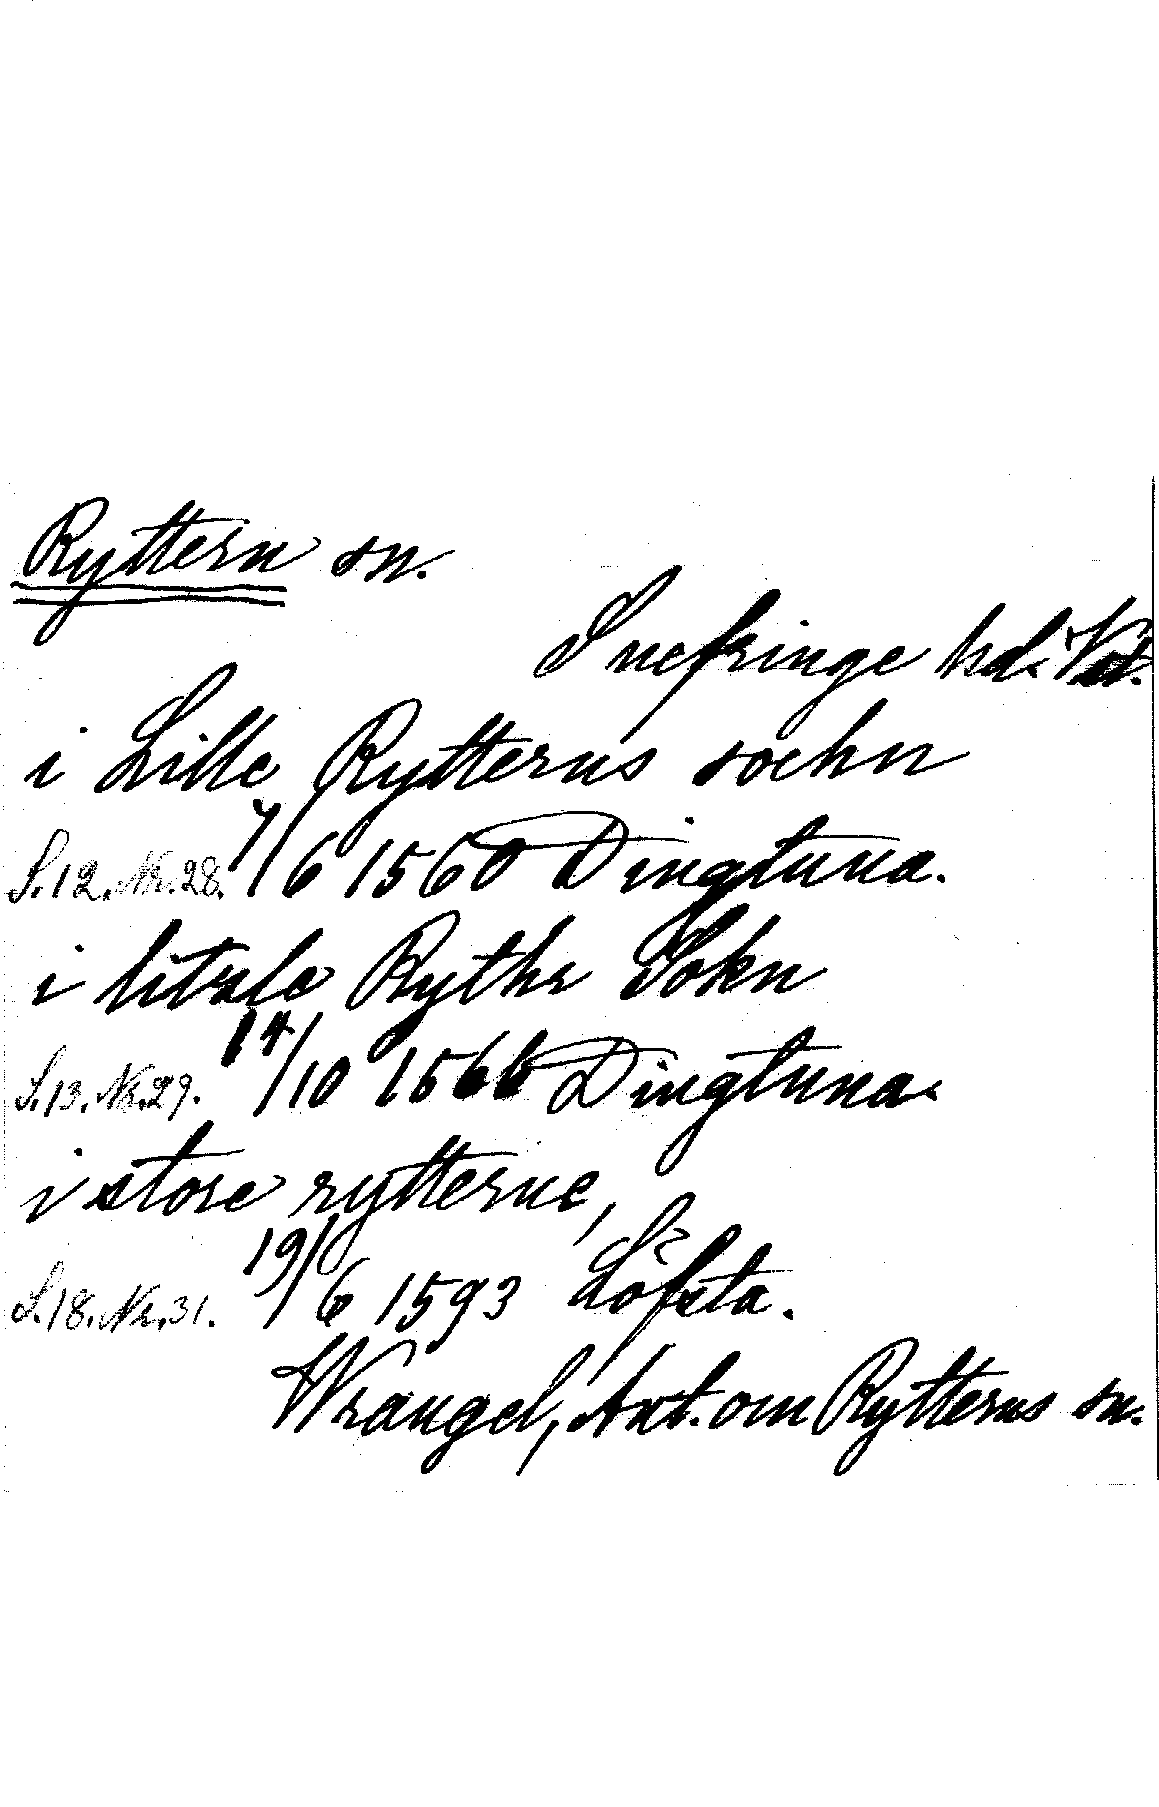 Ryttern sn.
Snefringe hd. Vstm.
i Lille Rytterns sochn
S.12. Nr.28. 7/6 1560 Dingtuna.
i litsle Rythr Sokn
S.13. Nr.29. 14/10 1566 Dingtuna.
i store rytterne,
S.18. Nr.31. 19/6 1593 Löfsta.
Wrangel, Ant. om Rytterns sn.